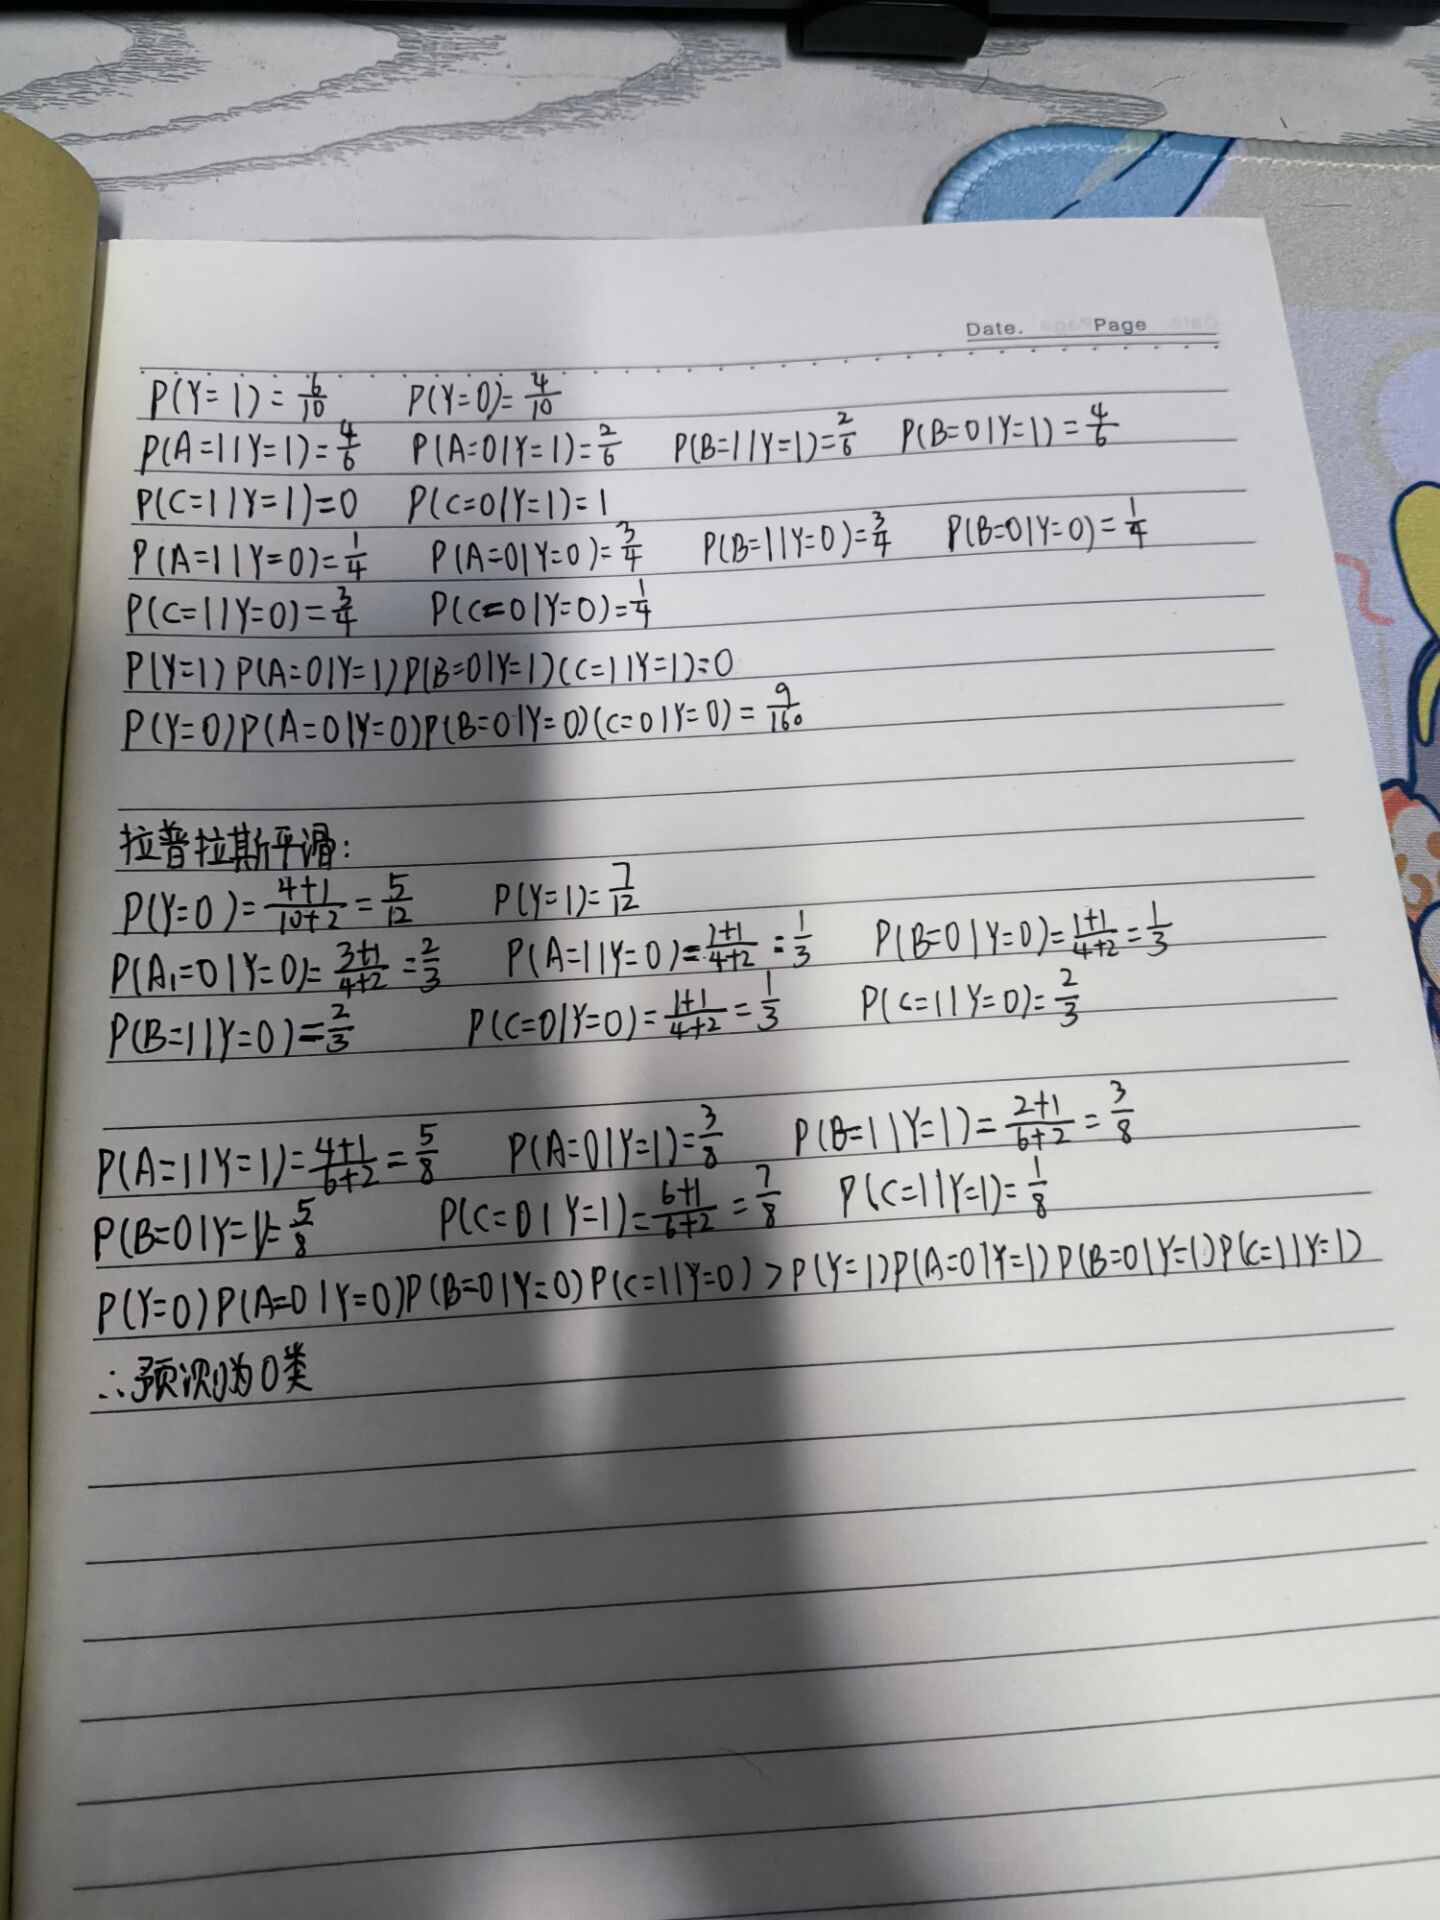 Date. Page
P(Y=1)=6/10 P(Y=0)=4/10
P(A=1|Y=1)=4/6 P(A=0|Y=1)=2/6 P(B=1|Y=1)=2/6 P(B=0|Y=1)=4/6
P(C=1|Y=1)=0 P(C=0|Y=1)=1
P(A=1|Y=0)=1/4 P(A=0|Y=0)=3/4 P(B=1|Y=0)=3/4 P(B=0|Y=0)=1/4
P(C=1|Y=0)=3/4 P(C=0|Y=0)=1/4
P(Y=1)P(A=0|Y=1)P(B=0|Y=1)(C=1|Y=1)=0
P(Y=0)P(A=0|Y=0)P(B=0|Y=0)(C=0|Y=0)=9/160
拉普拉斯平滑:
P(Y=0)=4+1/10+2=5/12 P(Y=1)=7/12
P(A1=0|Y=0)=3+1/4+2=2/3 P(A=1|Y=0)=1+1/4+2=1/3 P(B=0|Y=0)=1+1/4+2=1/3
P(B=1|Y=0)=2/3 P(C=0|Y=0)=1+1/4+2=1/3 P(C=1|Y=0)=2/3
P(A=1|Y=1)=4+1/6+2=5/8 P(A=0|Y=1)=3/8 P(B=1|Y=1)=2+1/6+2=3/8
P(B=0|Y=1)=5/8 P(C=0|Y=1)=6+1/6+2=7/8 P(C=1|Y=1)=1/8
P(Y=0)P(A=0|Y=0)P(B=0|Y=0)P(C=1|Y=0)>P(Y=1)P(A=0|Y=1)P(B=0|Y=1)P(C=1|Y=1)
∴预测为0类